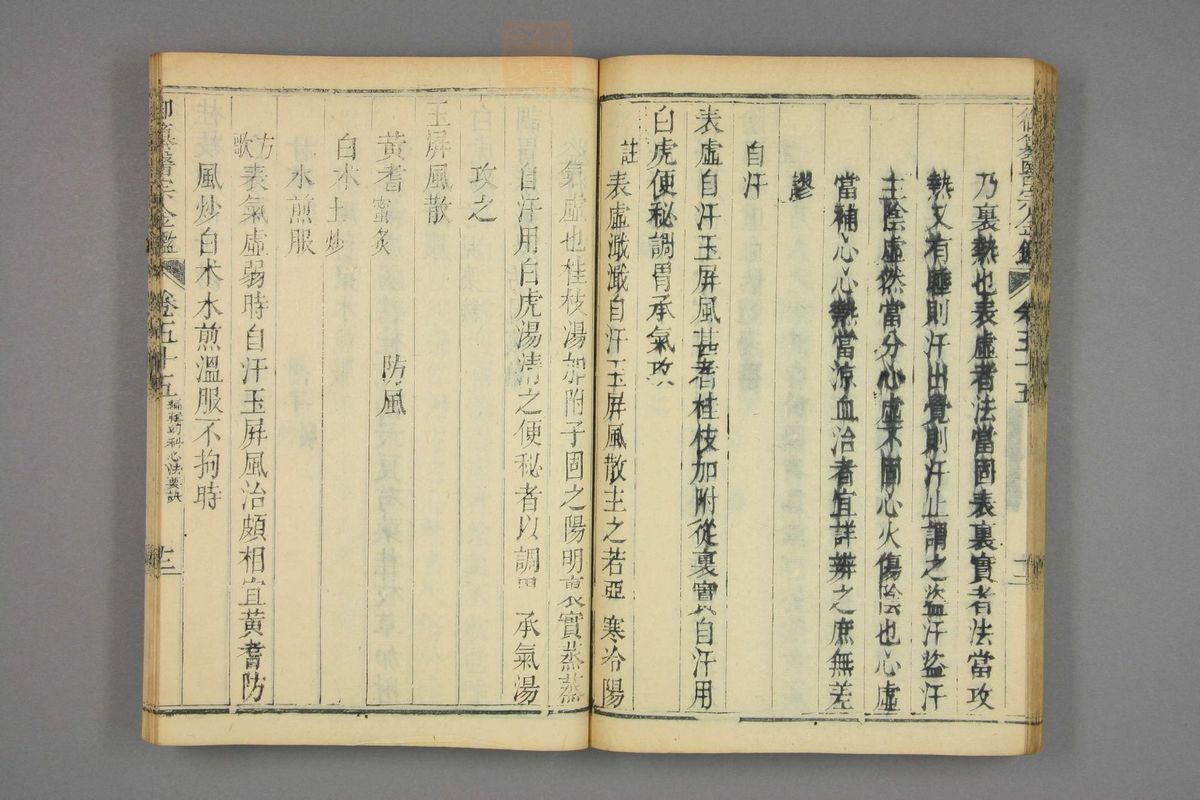 乃裏熱也表虛者法當固表裏實者法當攻
熱又有睡則汗出覺則汗止謂之盜汗盜汗
主陰虛然當分心虛不固心火傷陰也心虛
當補心心熱當涼血治者宜詳辨之庶無差
謬
自汗
表虛自汗玉屏風甚者桂枝加附從裏實自汗用
白虎便秘調胃承氣攻
註
表虛濈濈自汗玉屏風散主之若亞寒冷陽
氣虛也桂枝湯加附子固之陽明裏實蒸蒸
自汗用白虎湯清之便秘者以調胃承氣湯
攻之
玉屏風散
黃耆蜜炙 防風
白术土炒
水煎服
方歌
表氣虛弱時自汗玉屏風治頗相宜黃耆防
風炒白术水煎溫服不拘時
御纂醫宗金鑑 卷五十五 編輯幼科心法要訣 十二